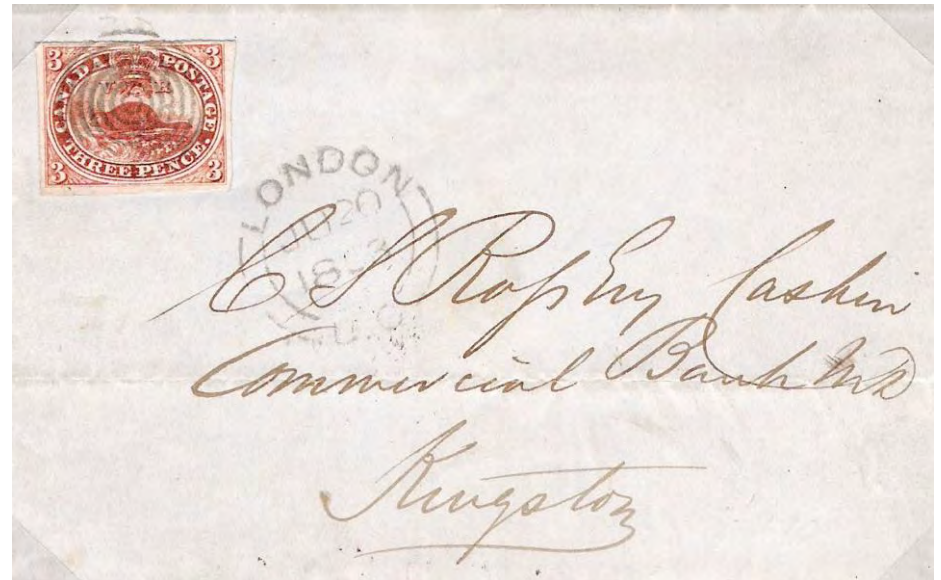 3 3
CANADA POSTAGE
V R
THREE PENCE.
3 3
LONDON
20
U.C
C S Ross Esq Cashier
Commercial Bank MD
Kingston